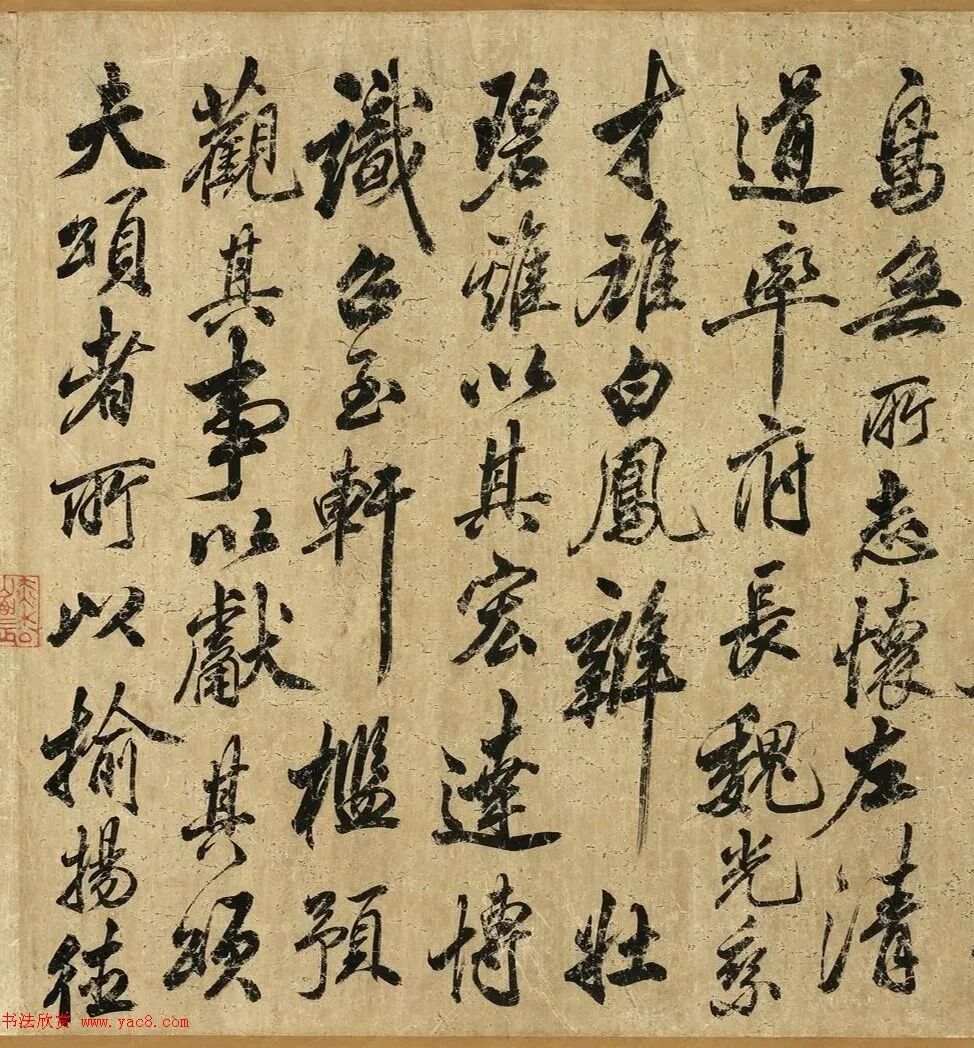 鳥無所志懷左清
道率府長魏光乘
才雄白鳳辯壯
碧雞以其宏達博
識召至軒檻預
觀其事以獻其頌
夫頌者所以揄揚德
书法欣赏 www.yac8.com